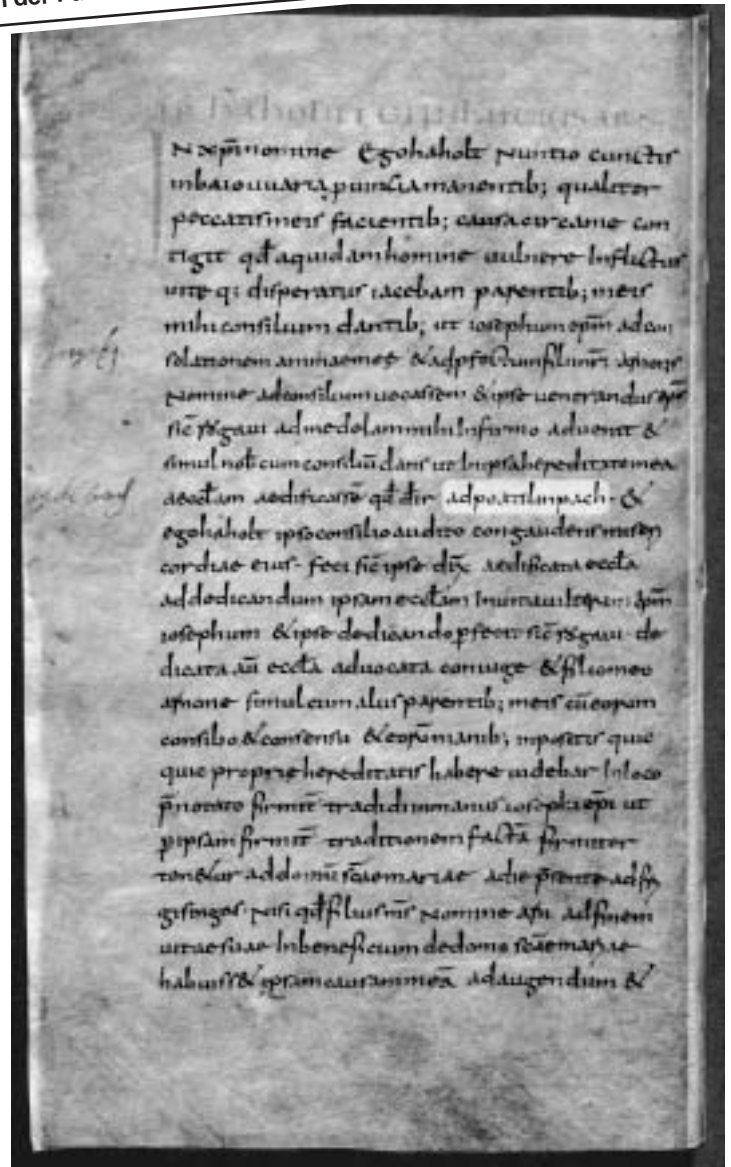 N xp̄i nomine Ego haholt Nuntio cunctis
in baiouuaria puincia manentib; qualiter
peccatis meis facientib; causa circa me con
tigit qđ a quidam homine uulnere Inflictus
uite q; disperatus iacebam parentib; meis
mihi consilium dantib; ut iosephum ep̄m ad con
solationem animae meę & ad pfectum filium
Nomine ad consilium uocassem & ipse uenerandus ep̄s
sic̄ rogaui ad medelam mihi Infirmo aduenit &
simul nob cum consiliū dans ut In ipsa hereditate mea
aeccłam aedificassē ad poatilinpach · &
ego haholt ipso consilio audito congaudens miseri
cordiae eius · feci sic̄ ipse dix̄ aedificata eccła
ad dedicandum ipsam eccłam Inuitaui iterum ep̄m
iosephum & ipse dedicando pfecit sic̄ rogaui · de
dicata aū eccła aduocata coniuge & filio meo
arnone simul cum aliis parentib; meis cū eorum
consilio & consensu & eorum manib; inpositis quic
quic propriae hereditatis habere uidebar In loco
p̄notato firmit̄ tradidi in manus iosephi ep̄i ut
p ipsam firmit̄ traditionem factā firmiter
ton&ur ad domū sc̄ae mariae a die p̄sente ad fri
gisingas · Nisi qđ filius m̄s Nomine arn ad finem
uitae suae In beneficium de domo sc̄ae mariae
habuiss& ipsam causam meā ad augendum &